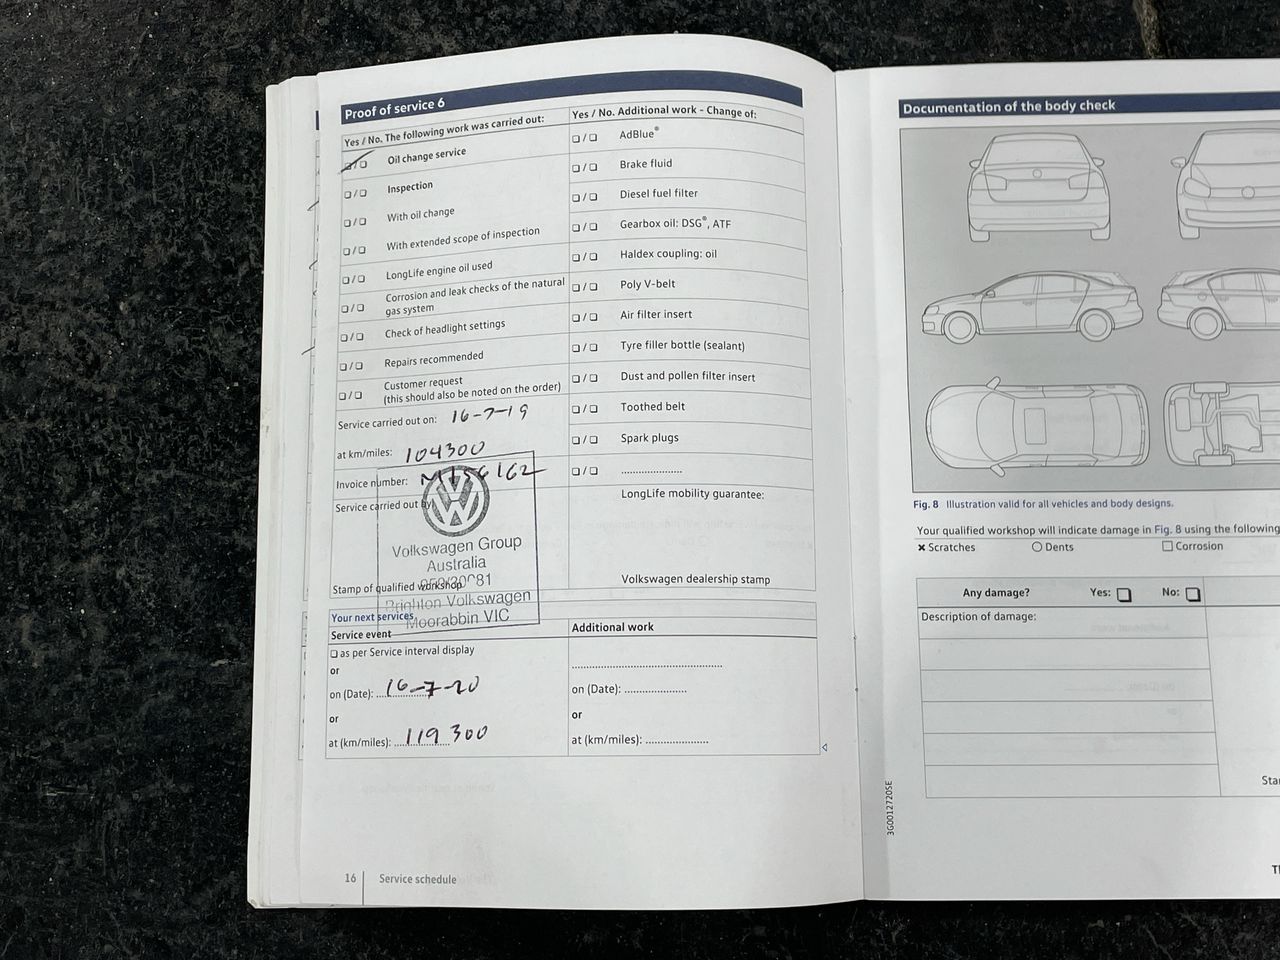 Proof of service 6
Yes / No. The following work was carried out:
❏ / ❏ Oil change service
❏ / ❏ Inspection
❏ / ❏ With oil change
❏ / ❏ With extended scope of inspection
❏ / ❏ LongLife engine oil used
❏ / ❏ Corrosion and leak checks of the natural
gas system
❏ / ❏ Check of headlight settings
❏ / ❏ Repairs recommended
❏ / ❏ Customer request
(this should also be noted on the order)
Service carried out on: 16-7-19
at km/miles: 104300
Invoice number:
Service carried out by
Volkswagen Group
Australia
Stamp of qualified workshop
Brighton Volkswagen
Moorabbin VIC
Yes / No. Additional work - Change of:
❏ / ❏ AdBlue®
❏ / ❏ Brake fluid
❏ / ❏ Diesel fuel filter
❏ / ❏ Gearbox oil: DSG®, ATF
❏ / ❏ Haldex coupling: oil
❏ / ❏ Poly V-belt
❏ / ❏ Air filter insert
❏ / ❏ Tyre filler bottle (sealant)
❏ / ❏ Dust and pollen filter insert
❏ / ❏ Toothed belt
❏ / ❏ Spark plugs
❏ / ❏ .....................
LongLife mobility guarantee:
Volkswagen dealership stamp
Your next services
Service event
❏ as per Service interval display
or
on (Date): 16-7-20
or
at (km/miles): 119 300
Additional work
on (Date): .....................
or
at (km/miles): .....................
16 Service schedule
Documentation of the body check
Fig. 8 Illustration valid for all vehicles and body designs.
Your qualified workshop will indicate damage in Fig. 8 using the following
✗ Scratches ○ Dents ☐ Corrosion
Any damage? Yes: ❏ No: ❏
Description of damage:
3G0012720SE